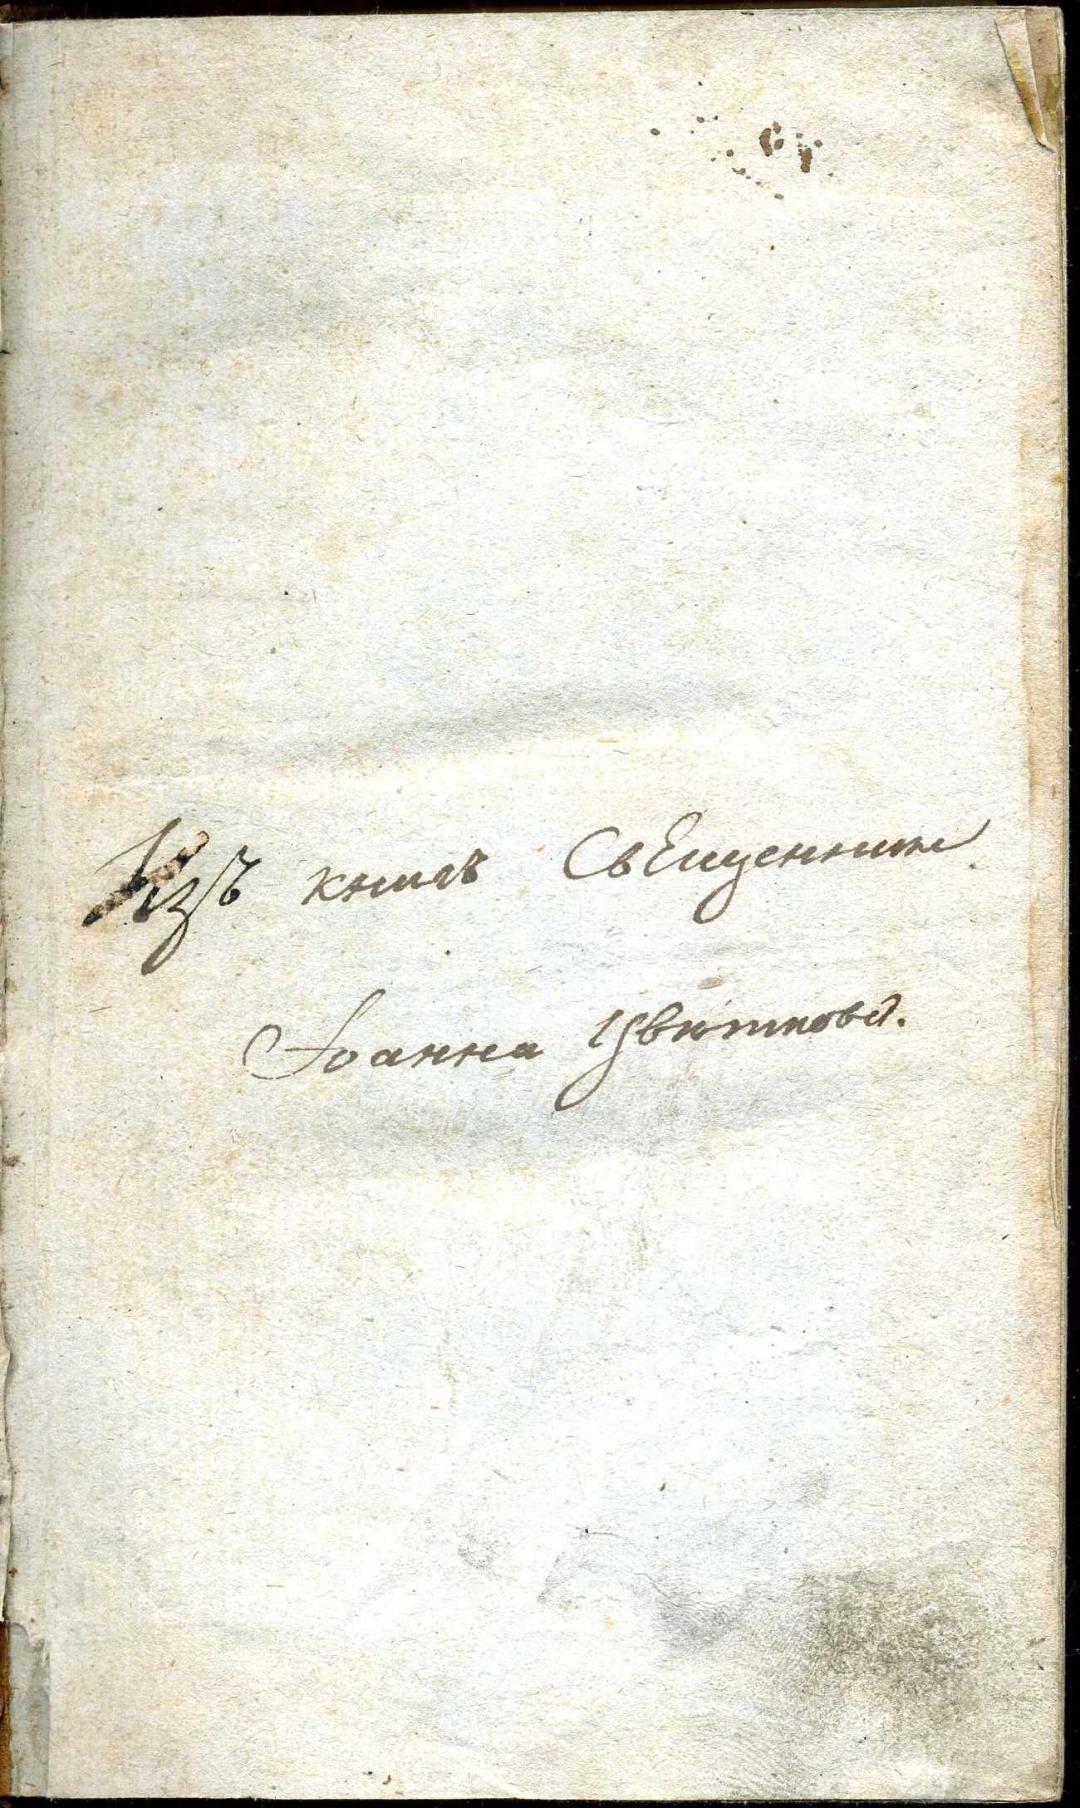 Изъ книгъ Священника
Іоанна Цвѣткова.